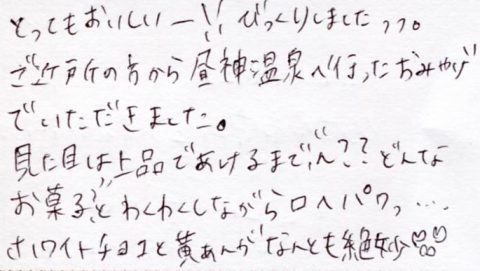 とってもおいしいー!! びっくりしましたっっ。
ご近所の方から昼神温泉へ行ったおみやげ
でいただきました。
見た目は上品であけるまで"ん?? どんな
お菓子??"とわくわくしながら口へパクっ…
ホワイトチョコと黄あんがなんとも絶妙♡♡